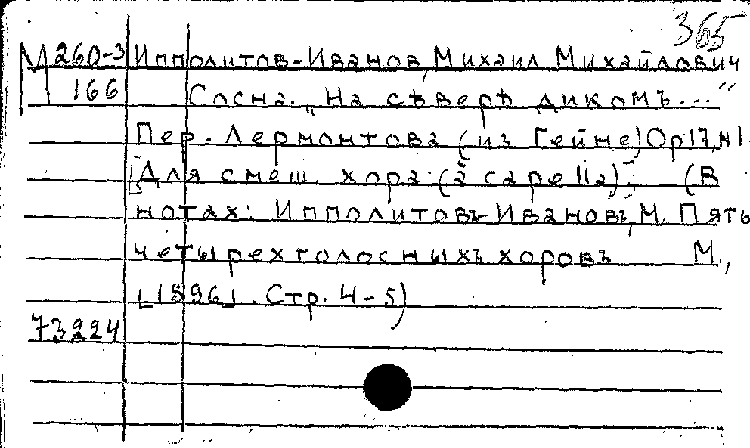 365
М 260-3 Ипполитов-Иванов, Михаил Михайлович
166 Сосна. "На сѣверѣ дикомъ..."
Пер. Лермонтова (из Гейне) Op 17, N 1
[Для смеш. хора (a capella)]. (В
нотах: Ипполитовъ-Ивановъ, М. Пять
четырехголосныхъ хоровъ М.,
[1896]. Стр. 4-5)
73224